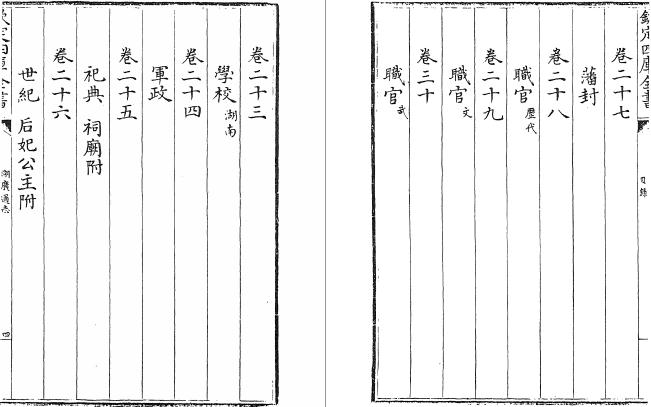 卷二十三
學校 湖南
卷二十四
軍政
卷二十五
祀典 祠廟附
卷二十六
世紀 后妃公主附
欽定四庫全書
湖廣通志
四
欽定四庫全書
目錄
卷二十七
藩封
卷二十八
職官 歷代
卷二十九
職官 文
卷三十
職官 武